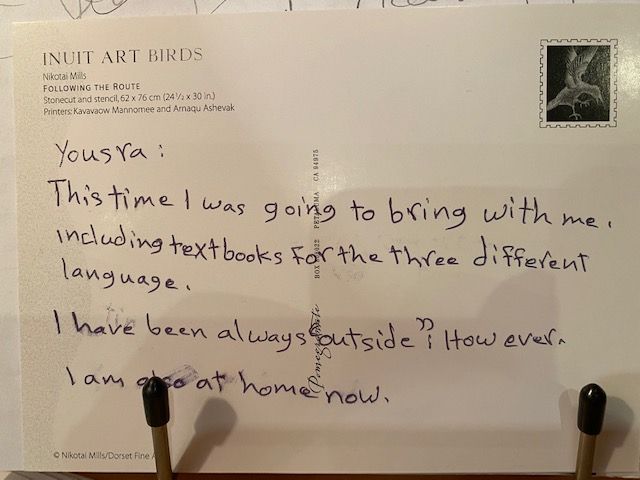 INUIT ART BIRDS
Nikotai Mills
FOLLOWING THE ROUTE
Stonecut and stencil, 62 x 76 cm (24 1/2 x 30 in.)
Printers: Kavavaow Mannomee and Arnaqu Ashevak
Yousra :
This time I was going to bring with me.
including textbooks for the three different
language.
I have been always outside" : However.
I am also at home now.
Pomegranate BOX 808022 PETALUMA CA 94975
© Nikotai Mills/Dorset Fine A